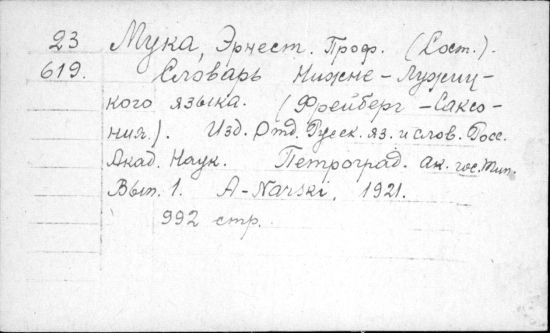 23 Мука, Эрнест. Проф. (Сост.).
619. Словарь Нижне-Лужиц-
кого языка. (Фрейберг-Саксо-
ния.). Изд. Отд. Русск. яз. и слов. Росс.
Акад. Наук. Петроград. ак. гос. тип.
Вып. 1. A-Narski, 1921.
992 стр.